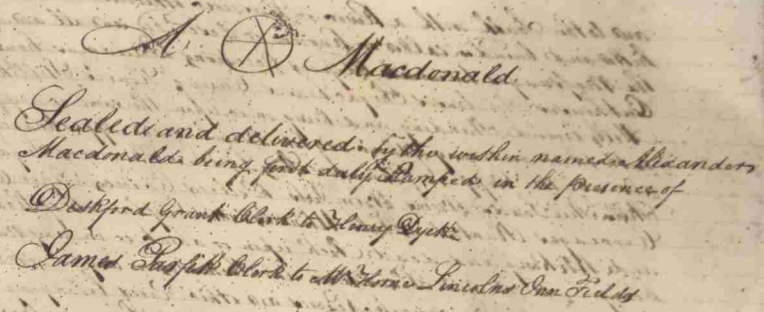 A. Macdonald
Sealed and delivered by the within named Alexander
Macdonald being first duly Stamped in the presence of
Deskford Grant Clerk to Henry Dyett
James Parfitt Clerk to Mr Horne Lincolns Inn Fields